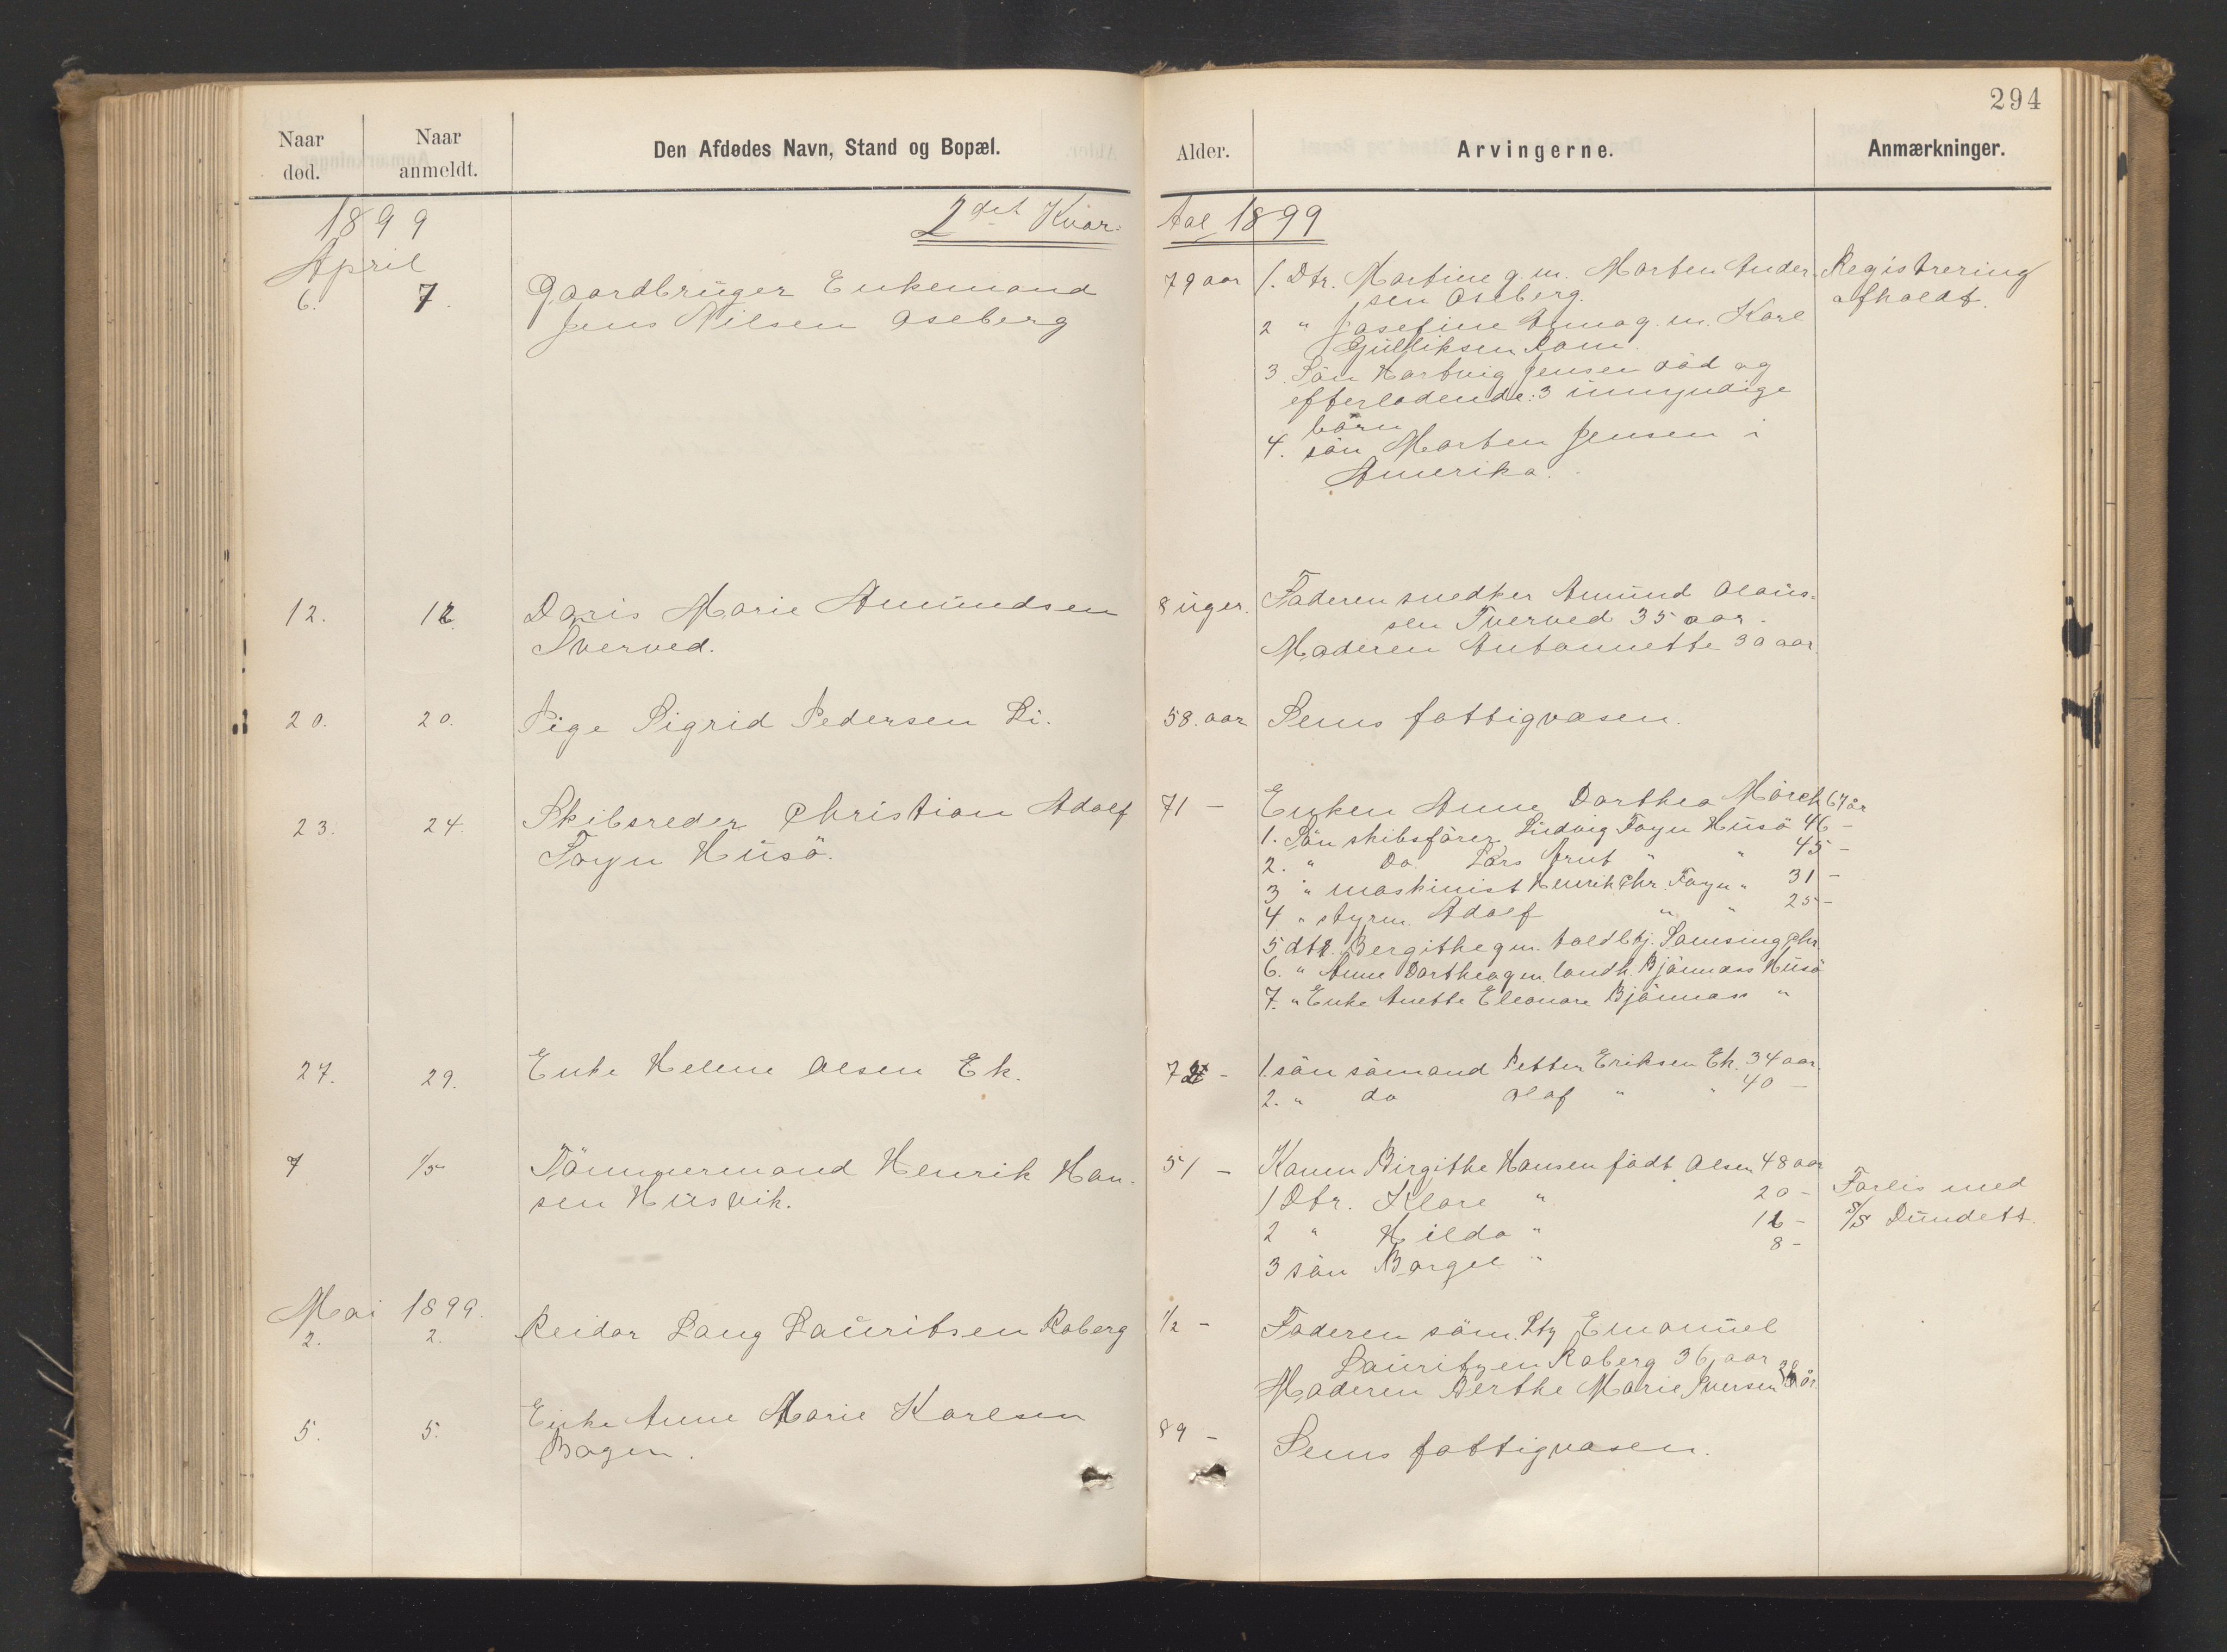 294
Naar død.
Naar anmeldt.
Den Afdødes Navn, Stand og Bopæl.
Alder.
Arvingerne.
Anmærkninger.
1899
2det Kvar-
tal 1899
April
6. 7. Gaardbrüger Enkemand
Jens Nilsen Oseberg
79 aar
1. Dtr. Martine g.m. Morten Ander-
sen Oseberg.
2 " Josefine Anna g.m. Karl
Gülliksen Rom.
3. Sön Hartvig Jensen död og
efterladende: 3 ümyndige
börn
4. sön Morten Jensen i
Amerika.
Registrering
afholdt.
12. 12 Doris Marie Amündsen
Tverved.
8 üger.
Faderen snedker Amünd Olaüs-
sen Tverved 35 aar.
Moderen Antonnette 30 aar.
20. 20. Pige Sigrid Pedersen Li.
58. aar
Sems fattigvæsen.
23. 24. Skibsreder Christian Adolf
Foyn Hüsö.
71 -
Enken Anne Dorthea Mörch 67 år
1. Sön skibsförer Lüdvig Foyn Hüsö 46 -
2. " Do Lars Arnt " " 45 -
3 " maskinist Henrik Chr. Foyn " 31 -
4 " styrm. Adolf " " 25 -
5 dtr. Bergithe gm. toldbtj. Samsing Chr.
6. " Anne Dorthea gm. landh. Bjönnæss Hüsö
7. " Enke Anette Eleonore Bjönnæss "
27. 29. Enke Helene Olsen Ek.
72 -
1. sön sömand Petter Eriksen Ek. 34 aar.
2. " do Olaf " " 40 -
7 1/5 Tömmermand Henrik Han-
sen Hüsvik.
51 -
Konen Birgithe Hansen födt Olsen 48 aar
1 Dtr. Klare " 20 -
2 " Hilda " 16 -
3 sön Borgel " 8 -
Forlis med
S/S Dündett.
Mai 1899.
2. 2. Reidar Lang Laüritsen Roberg
1/2 -
Faderen söm. Ltz Emanüel
Laüritzen Roberg 36 aar
Moderen Berthe Marie Iversen år
5. 5. Enke Anne Marie Karlsen
Bogen.
89 -
Sems fattigvæsen.